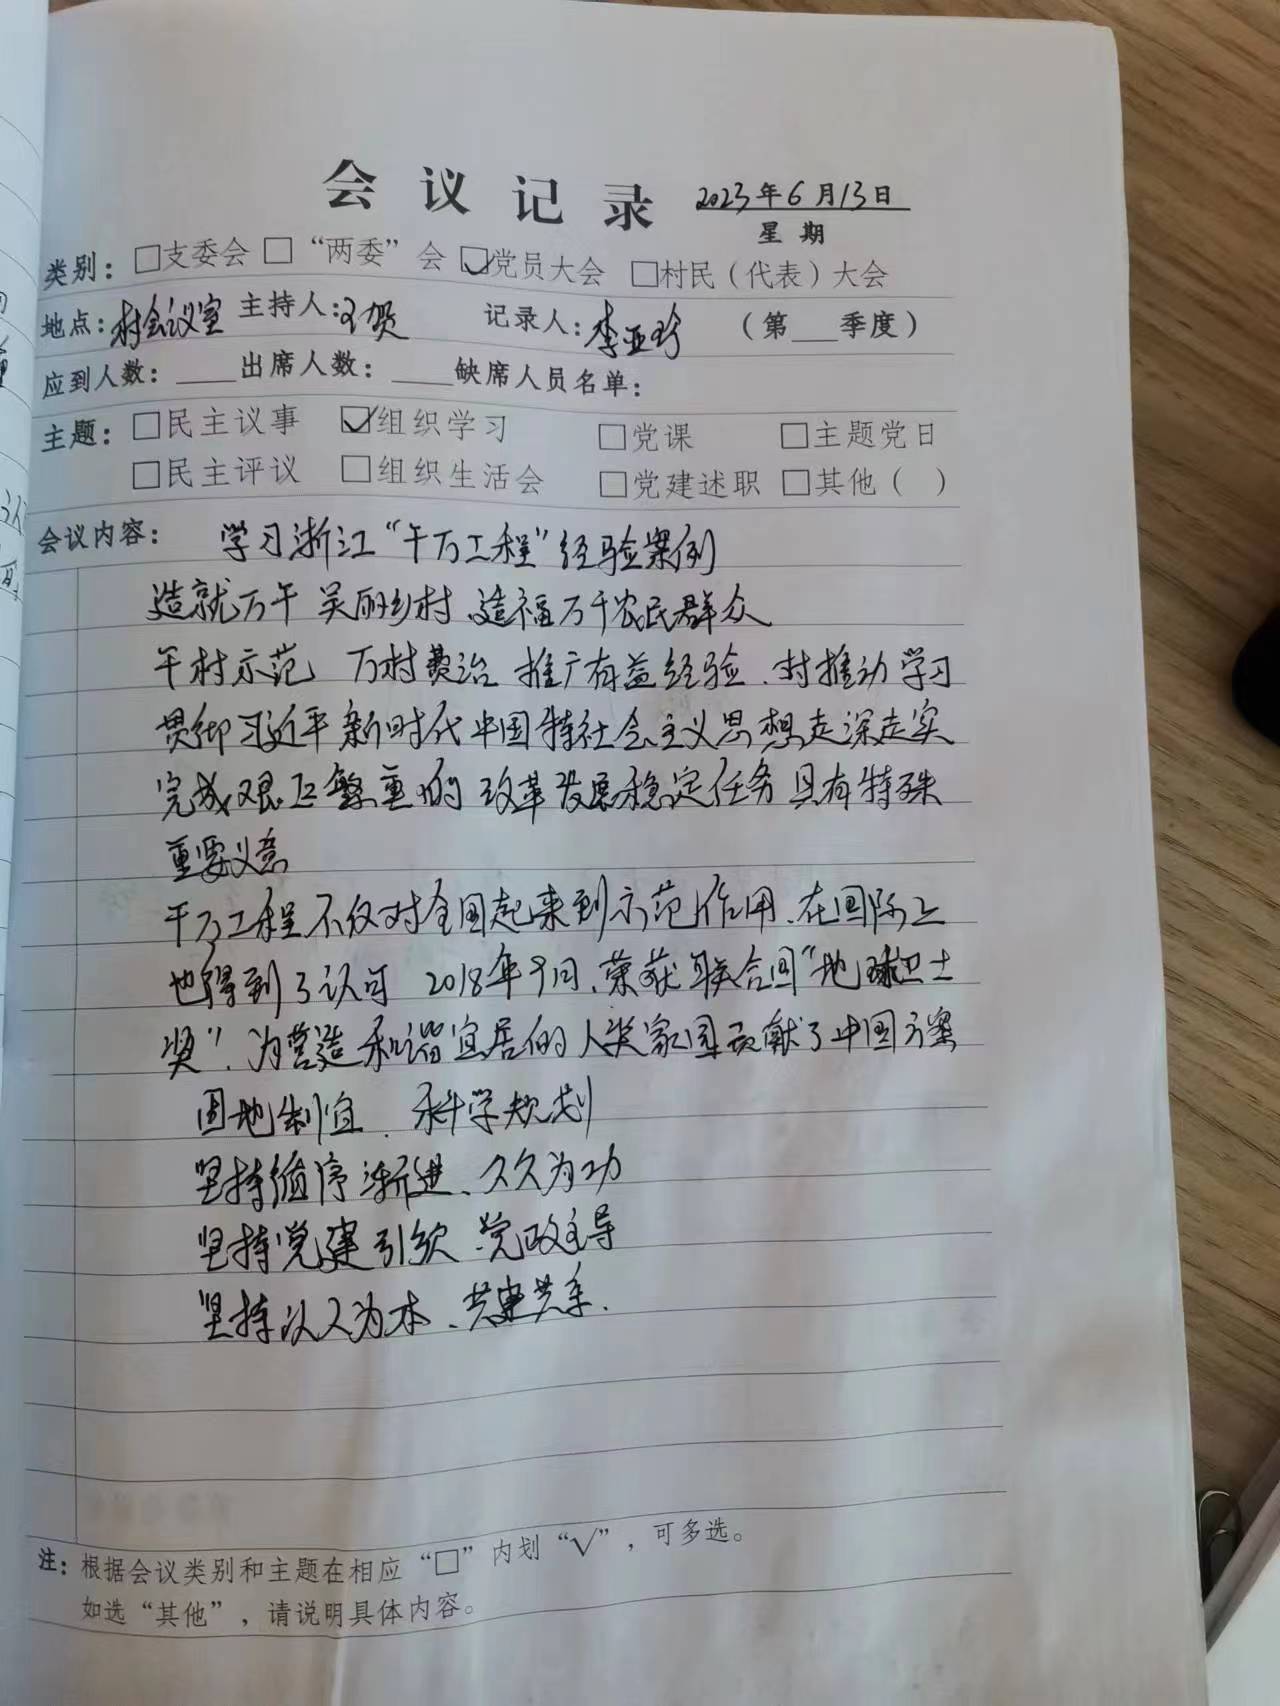 会议记录 2023年6月13日
星期
类别：□支委会 □“两委”会 ☑党员大会 □村民（代表）大会
地点：村会议室 主持人：王贺 记录人：李亚珍 （第__季度）
应到人数：____出席人数：____缺席人员名单：
主题：□民主议事 ☑组织学习 □党课 □主题党日
□民主评议 □组织生活会 □党建述职 □其他（ ）
会议内容： 学习浙江“千万工程”经验案例
造就万千美丽乡村、造福万千农民群众
千村示范 万村整治 推广有益经验、对推动学习
贯彻习近平新时代中国特社会主义思想走深走实
完成艰巨繁重的改革发展稳定任务具有特殊
重要义意
千万工程不仅对全国起来到示范作用、在国际上
也得到了认可 2018年9月、荣获联合国“地球卫士
奖”、为营造和谐宜居的人类家园贡献了中国方案
因地制宜、科学规划
坚持循序渐进、久久为功
坚持党建引领、党政主导
坚持以人为本、共建共享、
注：根据会议类别和主题在相应“□”内划“√”，可多选。
如选“其他”，请说明具体内容。